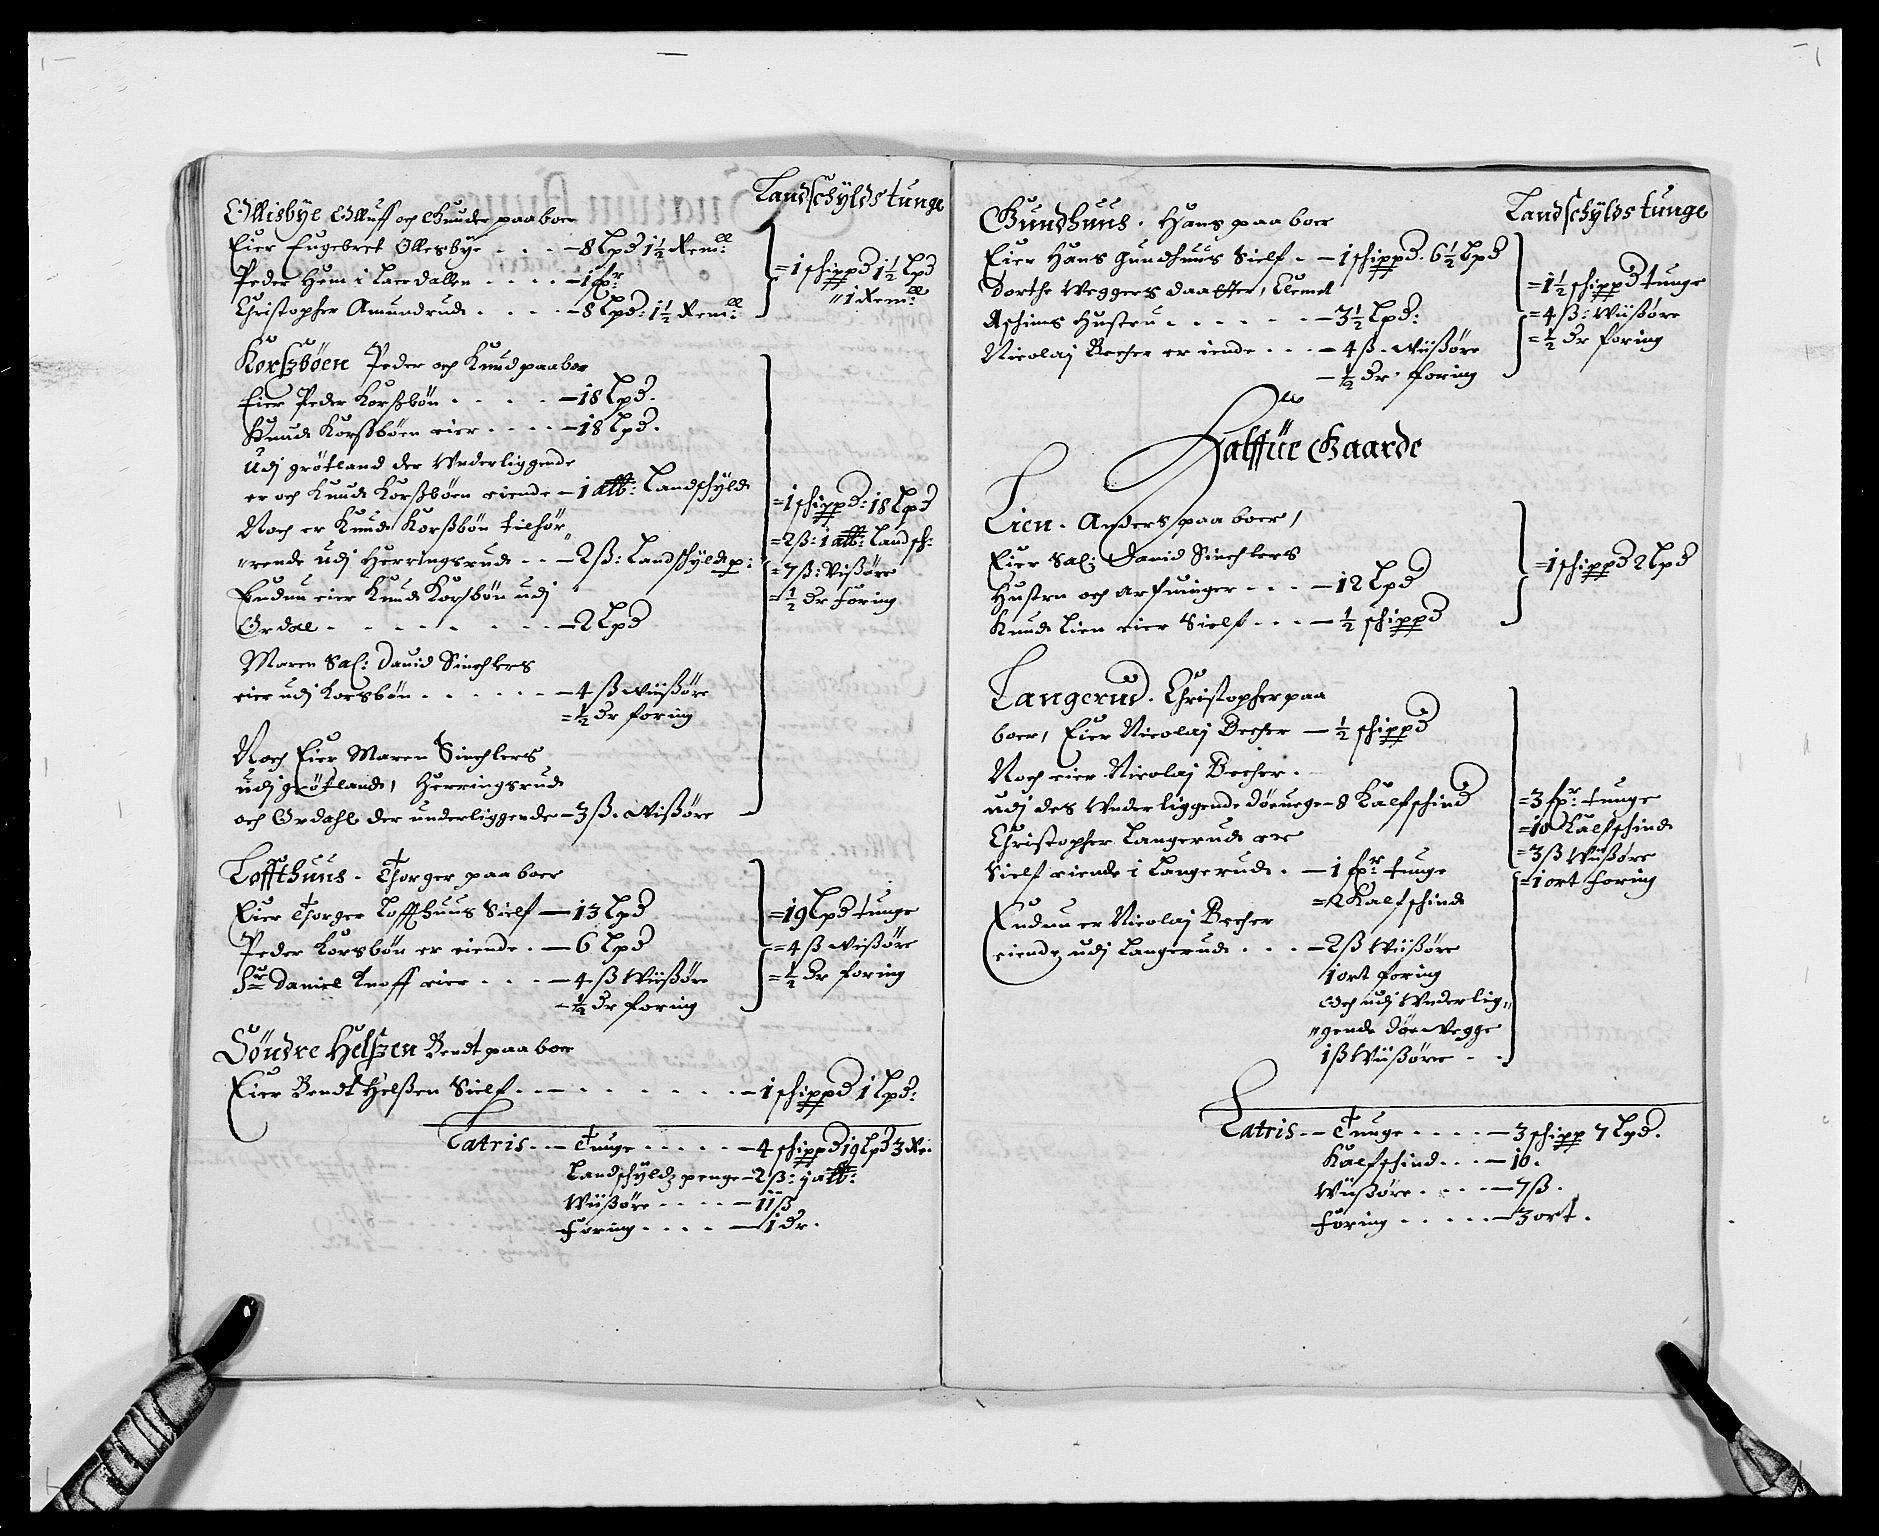 Landschÿlds tunge
Ollisbÿe Olluff och Gunder paaboer
Eier Engebret Ollesbÿe - - - - 8 Lpd 1½ Rem:
Peder Hem i Laerdallen - - - - 1 fr
Christopher Amundrud - - - - 8 Lpd: 1½ Rem:
= 1 schippd 1½ Lpd
" 1 Rem:
Korszbøen Peder och Knud paaboer
Eier Peder Korszbøn - - - - 18 Lpd.
Knud Korszbøen eier - - - - 18 Lpd.
Udj grøtland der Underliggende
er och Knud Korszbøen eiende - 1 alb: Landschÿld
Noch er Knud Korszbøn tilhør„
„rende udj Herringsrud - - 2 ß: Landschÿlds p:
Endnu eier Knud Korsbøn udj
Ordal - - - - - - - 2 Lpd
Maren Sal: Dauid Sinchlers
eier udj Korsbøn - - - - - - 4 ß Wiißøre
= ½ dr foring
Noch Eier Maren Sinchlers
udj grøtland, Herringsrud
och Ordahl der underliggende - 3 ß. Wißøre
= 1 schippd: 18 Lpd
= 2 ß: 1 alb: Landsch:
= 7 ß: Wißøre
= ½ dr foring
Loffthuus - Thorger paaboer
Eier Thorger Loffthuus Sielf - 13 Lpd
Peder Korsbøn er eiende - - 6 Lpd
Hr Daniel Knoff eier - - - - 4 ß Wiißøre
- ½ dr foring
= 19 Lpd tunge
= 4 ß Wißøre
= ½ dr foring
Søndre Helszen Bendt paaboer
Eier Bendt Helszen Sielf - - - - - - - - 1 schippd 1 Lpd:
Latris - - Tunge - - - - - 4 schippd 19 Lpd 3 Re.
Landschÿldz penge - 2 ß: 1 alb:
Wiißøre - - - - - 11 ß
foring - - - - - 1 dr.
Landschÿlds tunge
Gundhuus. Hans paaboer
Eier Hans Gundhuus Sielf - - 1 schippd. 6½ Lpd
Dorthe Weggers daatter, Clemet
Aschims Hustru - - - - - - 3½ Lpd:
Nicolaj Becher er iende - - - 4 ß. Wiißøre
- ½ dr. foring
= 1½ schippd tunge
= 4 ß: Wiißøre
= ½ dr foring
Halffüe Gaarde
Lien. Anders paaboer,
Eier Sal: Dauid Sinchlers
Hustru och arfuinger - - - 12 Lpd
Knud Lien eier Sielf - - - ½ schippd
= 1 schippd 2 Lpd
Langerud. Christopher paa
boer, Eier Nicolaj Becher - ½ schippd
Noch eier Nicolaj Becher.
udj des Underliggende Døeuege - 8 Kalfschind
Christopher Langerud er
Sielf eiende i Langerud. - 1 fr tunge
= 2 Kalfschind
Endnu er Nicolaj Becher
eiende udj Langerud - - - 2 ß Wiißøre
1 ort foring
Och udj Underlig„
„gende Døe Wegge
1 ß Wiißøre - -
= 3 fr: tunge
= 10 Kalfschind
= 3 ß Wiißøre
= 1 ort foring
Latris - - Tunge - - - - - 3 schipp 7 Lpd.
Kalfschind - - - 10.
Wiißøre - - - - 7 ß.
foring - - - - - 3 ort.